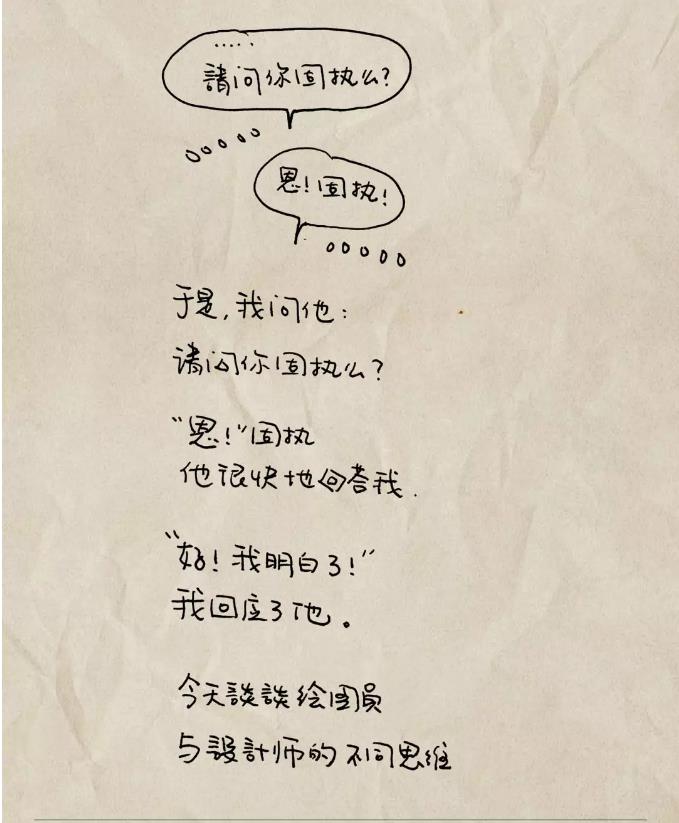 .....
請问你固执么?
恩!固执!
于是,我问他:
請问你固执么?
“恩!”固执
他很快地回答我.
“好!我明白了!”
我回应了他。
今天談談绘图員
与設計师的不同思维